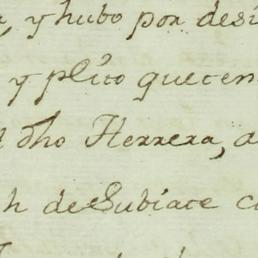 , y hubo por desi
y plito que ten
dho Herrera, a
h de Subiate c